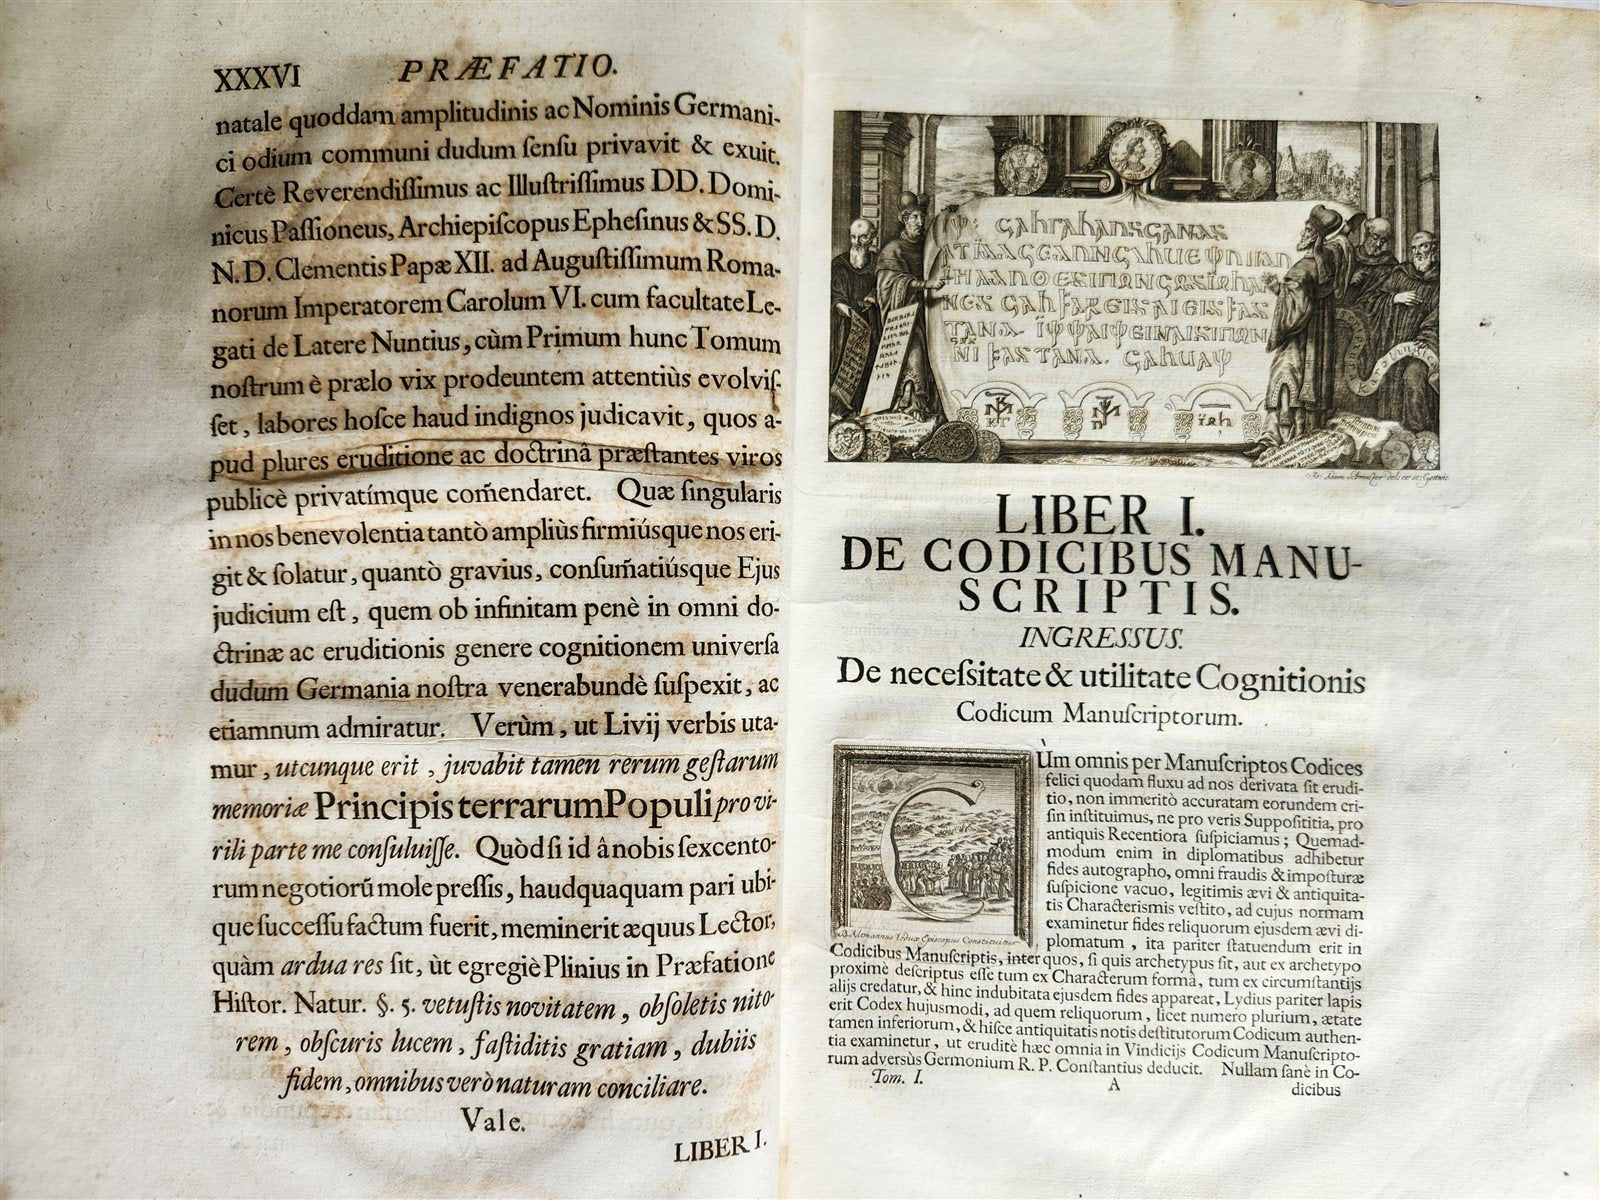 XXXVI PRÆFATIO.
natale quoddam amplitudinis ac Nominis Germani-
ci odium communi dudum ſenſu privavit & exuit.
Certè Reverendiſſimus ac Illuſtriſſimus DD. Domi-
nicus Paſſioneus, Archiepiſcopus Epheſinus & SS. D.
N. D. Clementis Papæ XII. ad Auguſtiſſimum Roma-
norum Imperatorem Carolum VI. cum facultate Le-
gati de Latere Nuntius, cùm Primum hunc Tomum
noſtrum è prælo vix prodeuntem attentiùs evolviſ-
ſet, labores hoſce haud indignos judicavit, quos a-
pud plures eruditione ac doctrinâ præſtantes viros
publicè privatímque com̃endaret. Quæ ſingularis
in nos benevolentia tantò ampliùs firmiúsque nos eri-
git & ſolatur, quantò gravius, conſum̃atiúsque Ejus
judicium eſt, quem ob infinitam penè in omni do-
ctrinæ ac eruditionis genere cognitionem univerſa
dudum Germania noſtra venerabundè ſuſpexit, ac
etiamnum admiratur. Verùm, ut Livij verbis uta-
mur, utcunque erit, juvabit tamen rerum geſtarum
memoriæ Principis terrarum Populi pro vi-
rili parte me conſuluiſſe. Quòd ſi id â nobis ſexcento-
rum negotiorũ mole preſſis, haudquaquam pari ubi-
que ſucceſſu factum fuerit, meminerit æquus Lector,
quàm ardua res ſit, ùt egregiè Plinius in Præfatione
Hiſtor. Natur. §. 5. vetuſtis novitatem, obſoletis nito-
rem, obſcuris lucem, faſtiditis gratiam, dubiis
fidem, omnibus verò naturam conciliare.
Vale.
LIBER I.
LIBER I.
DE CODICIBUS MANU-
SCRIPTIS.
INGRESSUS.
De neceſsitate & utilitate Cognitionis
Codicum Manuſcriptorum.
CÙm omnis per Manuſcriptos Codices
felici quodam fluxu ad nos derivata ſit erudi-
tio, non immeritò accuratam eorundem cri-
ſin inſtituimus, ne pro veris Suppoſititia, pro
antiquis Recentiora ſuſpiciamus; Quemad-
modum enim in diplomatibus adhibetur
fides autographo, omni fraudis & impoſturæ
ſuſpicione vacuo, legitimis ævi & antiquita-
tis Characteriſmis veſtito, ad cujus normam
examinetur fides reliquorum ejusdem ævi di-
plomatum, ita pariter ſtatuendum erit in
Codicibus Manuſcriptis, inter quos, ſi quis archetypus ſit, aut ex archetypo
proximè deſcriptus eſſe tum ex Characterum formâ, tum ex circumſtantijs
alijs credatur, & hinc indubitata ejusdem fides appareat, Lydius pariter lapis
erit Codex hujusmodi, ad quem reliquorum, licet numero plurium, ætate
tamen inferiorum, & hiſce antiquitatis notis deſtitutorum Codicum authen-
tia examinetur, ut eruditè hæc omnia in Vindicijs Codicum Manuſcripto-
rum adversùs Germonium R. P. Conſtantius deducit. Nullam ſanè in Co-
Tom. I. A dicibus